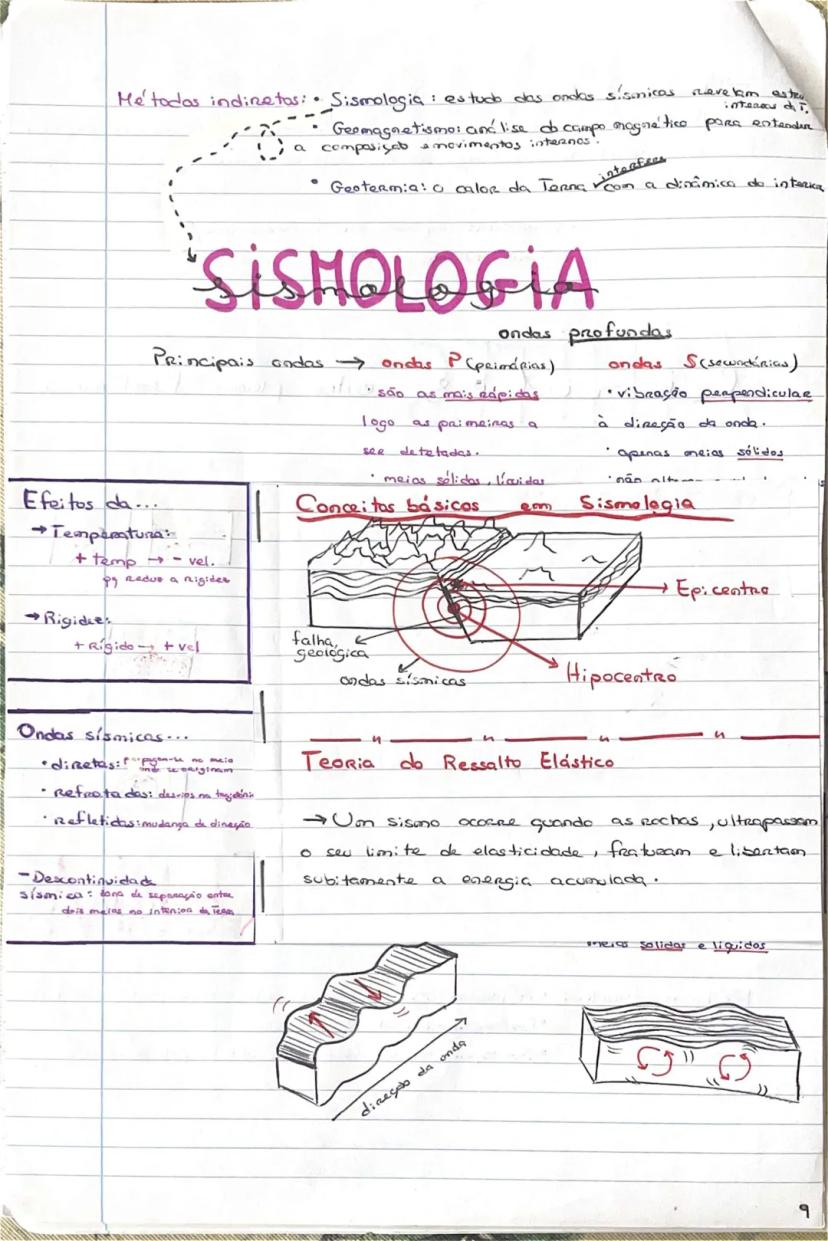 Métodos indiretos: • Sismologia: estudo das ondas sísmicas revelam
internas da T.
• Geomagnetismo: análise do campo magnético para entender
a composição e movimentos internos.
interfere
• Geotermia: o calor da Terra com a dinâmica do interior
SISMOLOGIA
sismologia
ondas profundas
Principais ondas → ondas P (primárias) ondas S (secundárias)
• são as mais rápidas • vibração perpendicular
logo as primeiras a à direção da onda.
ser detetadas. • apenas meios sólidos
• meios sólidos, líquidos • não
Efeitos da...
→ Temperatura:
+ temp → - vel.
pq reduz a rigidez
→ Rigidez:
+ Rígido → + vel
Ondas sísmicas...
• diretas: propagam-se no meio
onde se originam
• Refratadas: desvios na trajetória
• Refletidas: mudança de direção
- Descontinuidade
sísmica: zona de separação entre
dois meios no interior da Terra
Conceitos básicos em Sismologia
Epicentro
falha
geológica
Hipocentro
ondas sísmicas
Teoria do Ressalto Elástico
→ Um sismo ocorre quando as rochas, ultrapassam
o seu limite de elasticidade, fraturam e libertam
subitamente a energia acumulada.
meios sólidos e líquidos
direção da onda
9